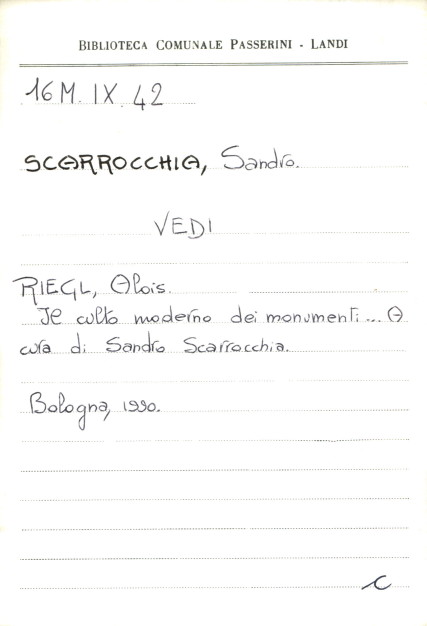 BIBLIOTECA COMUNALE PASSERINI - LANDI
16 M. IX. 42
SCARROCCHIA, Sandro.
VEDI
RIEGL, Alois.
Il culto moderno dei monumenti... A
cura di Sandro Scarrocchia.
Bologna, 1990.
C